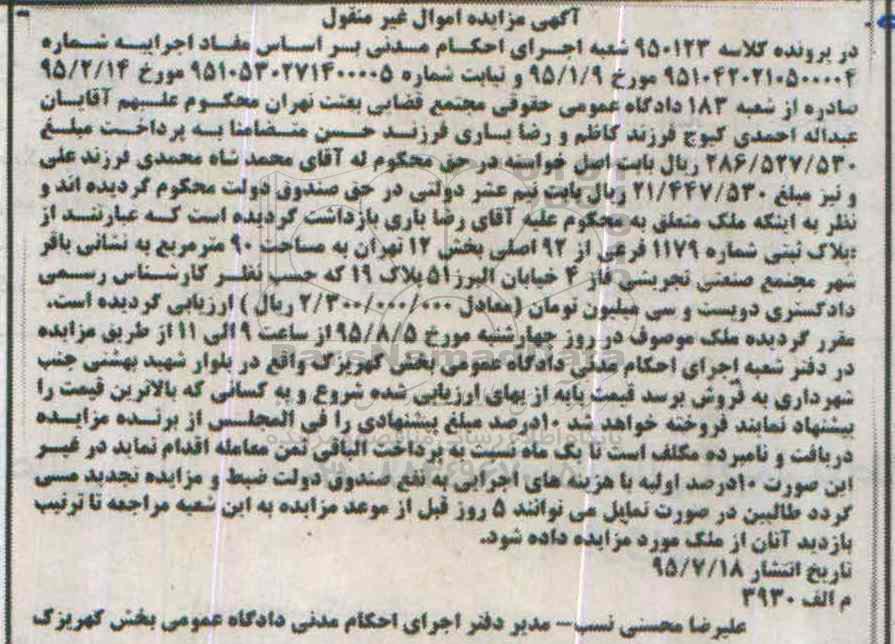 آگهی مزایده اموال غیر منقول
در پرونده کلاسه ۹۵۰۱۲۳ شعبه اجرای احکام مدنی بر اساس مفاد اجراییه شماره
۹۵۱۰۴۲۰۲۱۰۵۰۰۰۰۴ مورخ ۹۵/۱/۹ و نیابت شماره ۹۵۱۰۵۳۰۲۷۱۴۰۰۰۰۵ مورخ ۹۵/۲/۱۴
صادره از شعبه ۱۸۳ دادگاه عمومی حقوقی مجتمع قضایی بعثت تهران محکوم علیهم آقایان
عبداله احمدی کیوج فرزند کاظم و رضا یاری فرزند حسن متضامنا به پرداخت مبلغ
۲۸۶/۵۲۷/۵۳۰ ریال بابت اصل خواسته در حق محکوم له آقای محمد شاه محمدی فرزند علی
و نیز مبلغ ۲۱/۴۴۷/۵۳۰ ریال بابت نیم عشر دولتی در حق صندوق دولت محکوم گردیده اند و
نظر به اینکه ملک متعلق به محکوم علیه آقای رضا یاری بازداشت گردیده است که عبارتند از
:پلاک ثبتی شماره ۱۱۷۹ فرعی از ۹۲ اصلی بخش ۱۲ تهران به مساحت ۹۰ مترمربع به نشانی باقر
شهر مجتمع صنعتی تجریشی فاز ۴ خیابان البرز ۵۱ پلاک ۱۹ که حسب نظر کارشناس رسمی
دادگستری دویست و سی میلیون تومان (معادل ۲/۳۰۰/۰۰۰/۰۰۰ ریال ) ارزیابی گردیده است.
مقرر گردیده ملک موصوف در روز چهارشنبه مورخ ۹۵/۸/۵ از ساعت ۹ الی ۱۱ از طریق مزایده
در دفتر شعبه اجرای احکام مدنی دادگاه عمومی بخش کهریزک واقع در بلوار شهید بهشتی جنب
شهرداری به فروش برسد قیمت پایه از بهای ارزیابی شده شروع و به کسانی که بالاترین قیمت را
پیشنهاد نمایند فروخته خواهد شد ۱۰درصد مبلغ پیشنهادی را فی المجلس از برنده مزایده
دریافت و نامبرده مکلف است تا یک ماه نسبت به پرداخت الباقی ثمن معامله اقدام نماید در غیر
این صورت ۱۰درصد اولیه با هزینه های اجرایی به نفع صندوق دولت ضبط و مزایده تجدید می
گردد طالبین در صورت تمایل می توانند ۵ روز قبل از موعد مزایده به این شعبه مراجعه تا ترتیب
بازدید آنان از ملک مورد مزایده داده شود.
تاریخ انتشار ۹۵/۷/۱۸
م الف ۳۹۳۰
علیرضا محسنی نسب- مدیر دفتر اجرای احکام مدنی دادگاه عمومی بخش کهریزک